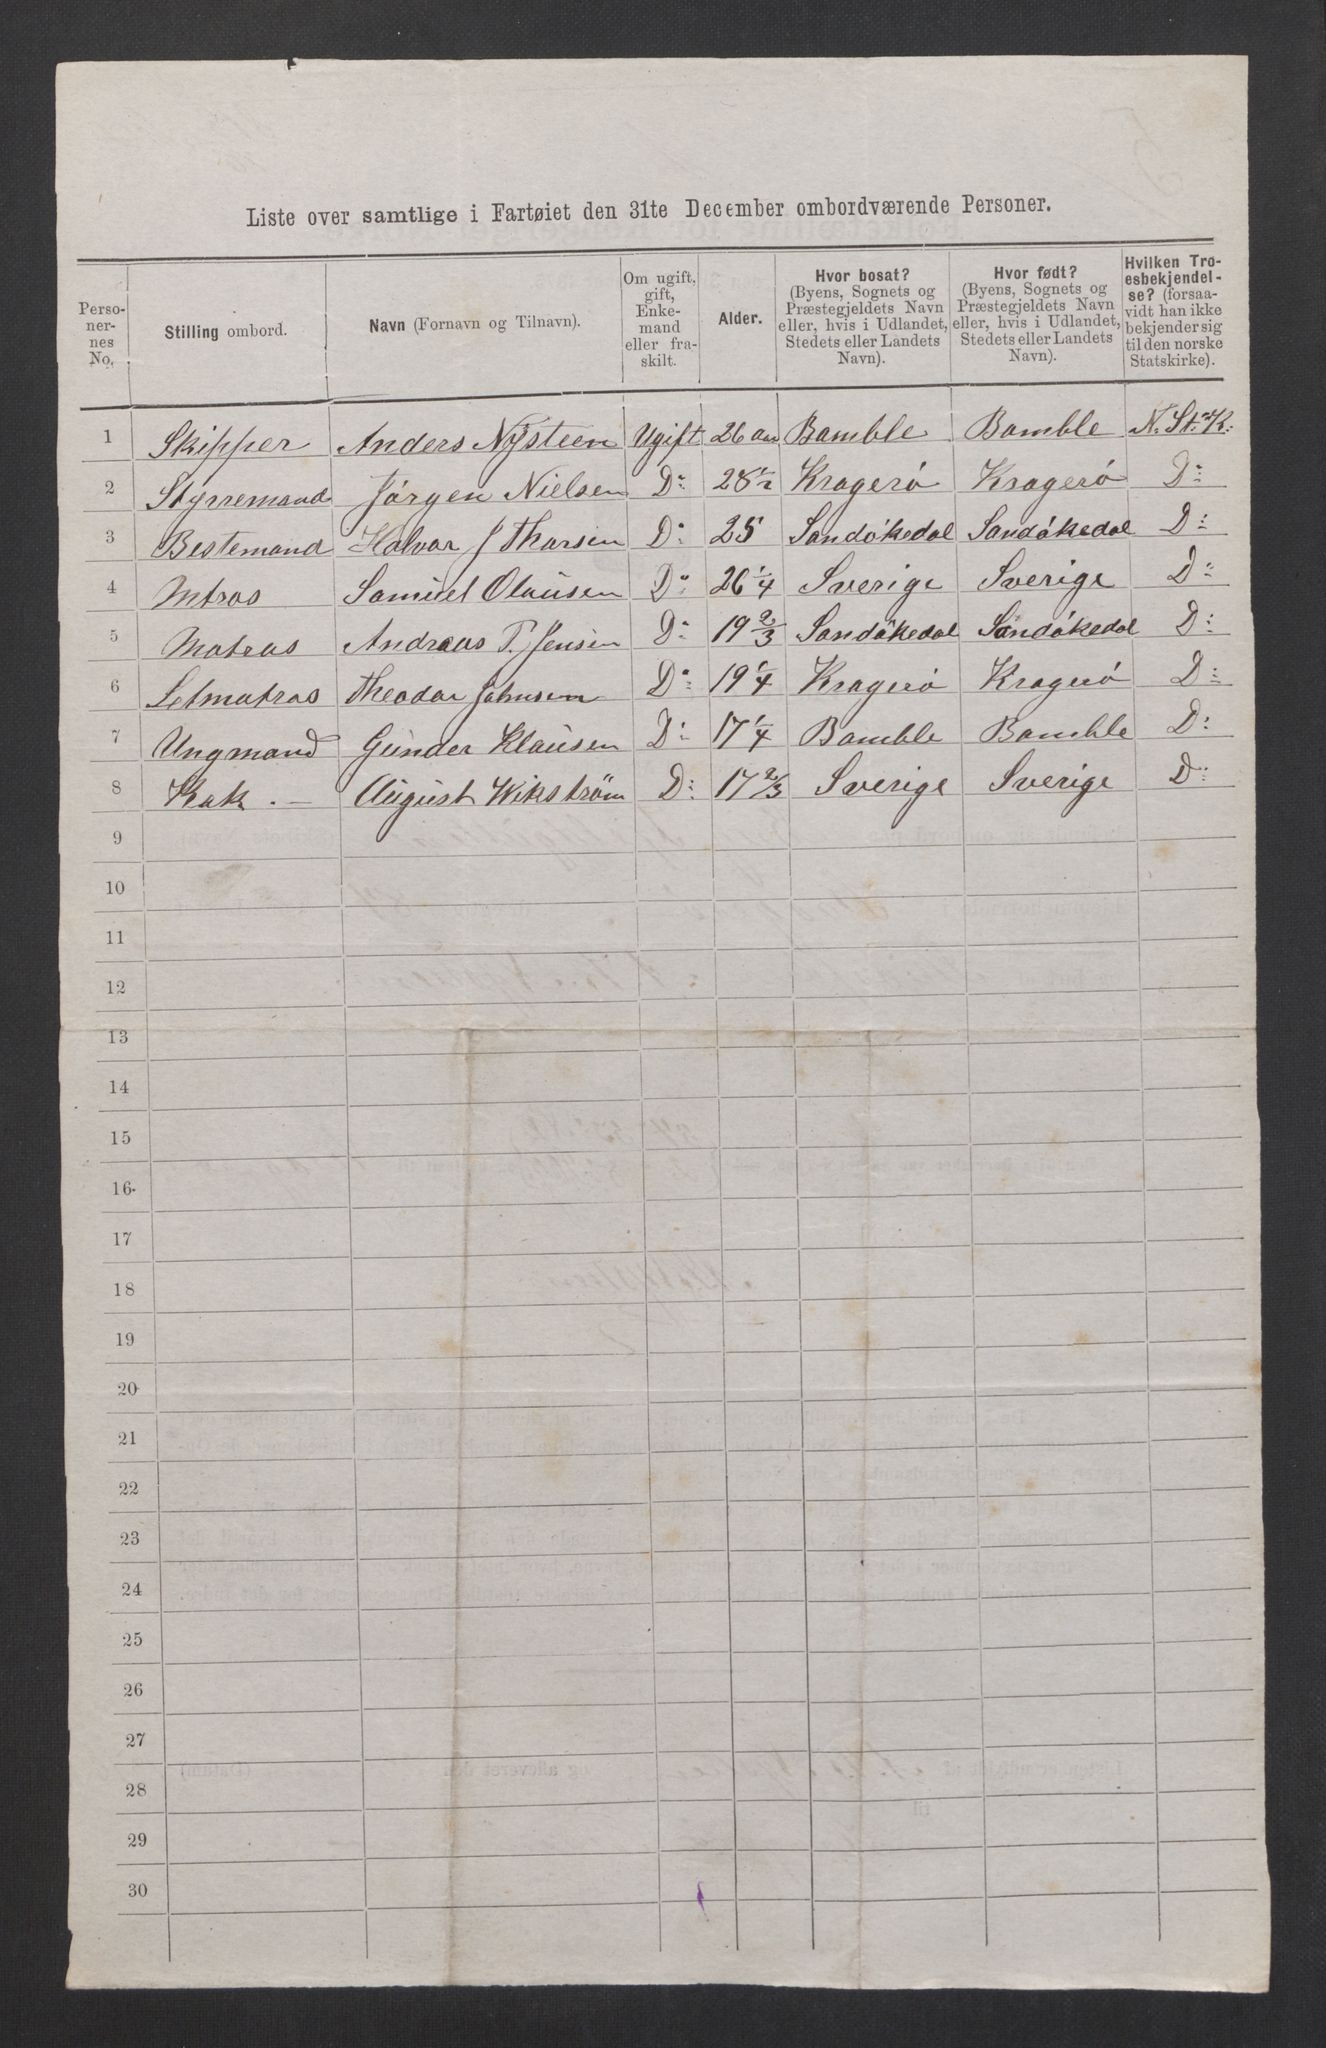 Liste over samtlige i Fartøiet den 31te December ombordværende Personer.
Perso-
ner-
nes
No.
Stilling ombord.
Navn (Fornavn og Tilnavn).
Om ugift,
gift,
Enke-
mand
eller fra-
skilt.
Alder.
Hvor bosat?
(Byens, Sognets og
Præstegjeldets Navn
eller, hvis i Udlandet,
Stedets eller Landets
Navn).
Hvor født?
(Byens, Sognets og
Præstegjeldets Navn
eller, hvis i Udlandet,
Stedets eller Landets
Navn).
Hvilken Tro-
esbekjendel-
se? (forsaa-
vidt han ikke
bekjender sig
til den norske
Statskirke).
1 Skipper Anders Nysteen Ugift 26 aar Bamble Bamble N. St. K:
2 Styrremand Jørgen Nielsen D: 28½ Kragerö Kragerö D:
3 Bestemand Halvor J Tharsen D: 25 Sandökedal Sandökedal D:
4 Mtros Samuel Olausen D: 26 1/4 Sverige Sverige D:
5 Matros Andreas T. Jensen D: 19 2/3 Sandökedal Sandökedal D:
6 Letmatros Theodor Johnsen D: 19 1/4 Kragerö Kragerö D:
7 Ungmand Gunder Klausen D: 17 1/4 Bamble Bamble D:
8 Kok . — August Wikström D: 17 2/3 Sverige Sverige D:
9
10
11
12
13
14
15
16
17
18
19
20
21
22
23
24
25
26
27
28
29
30